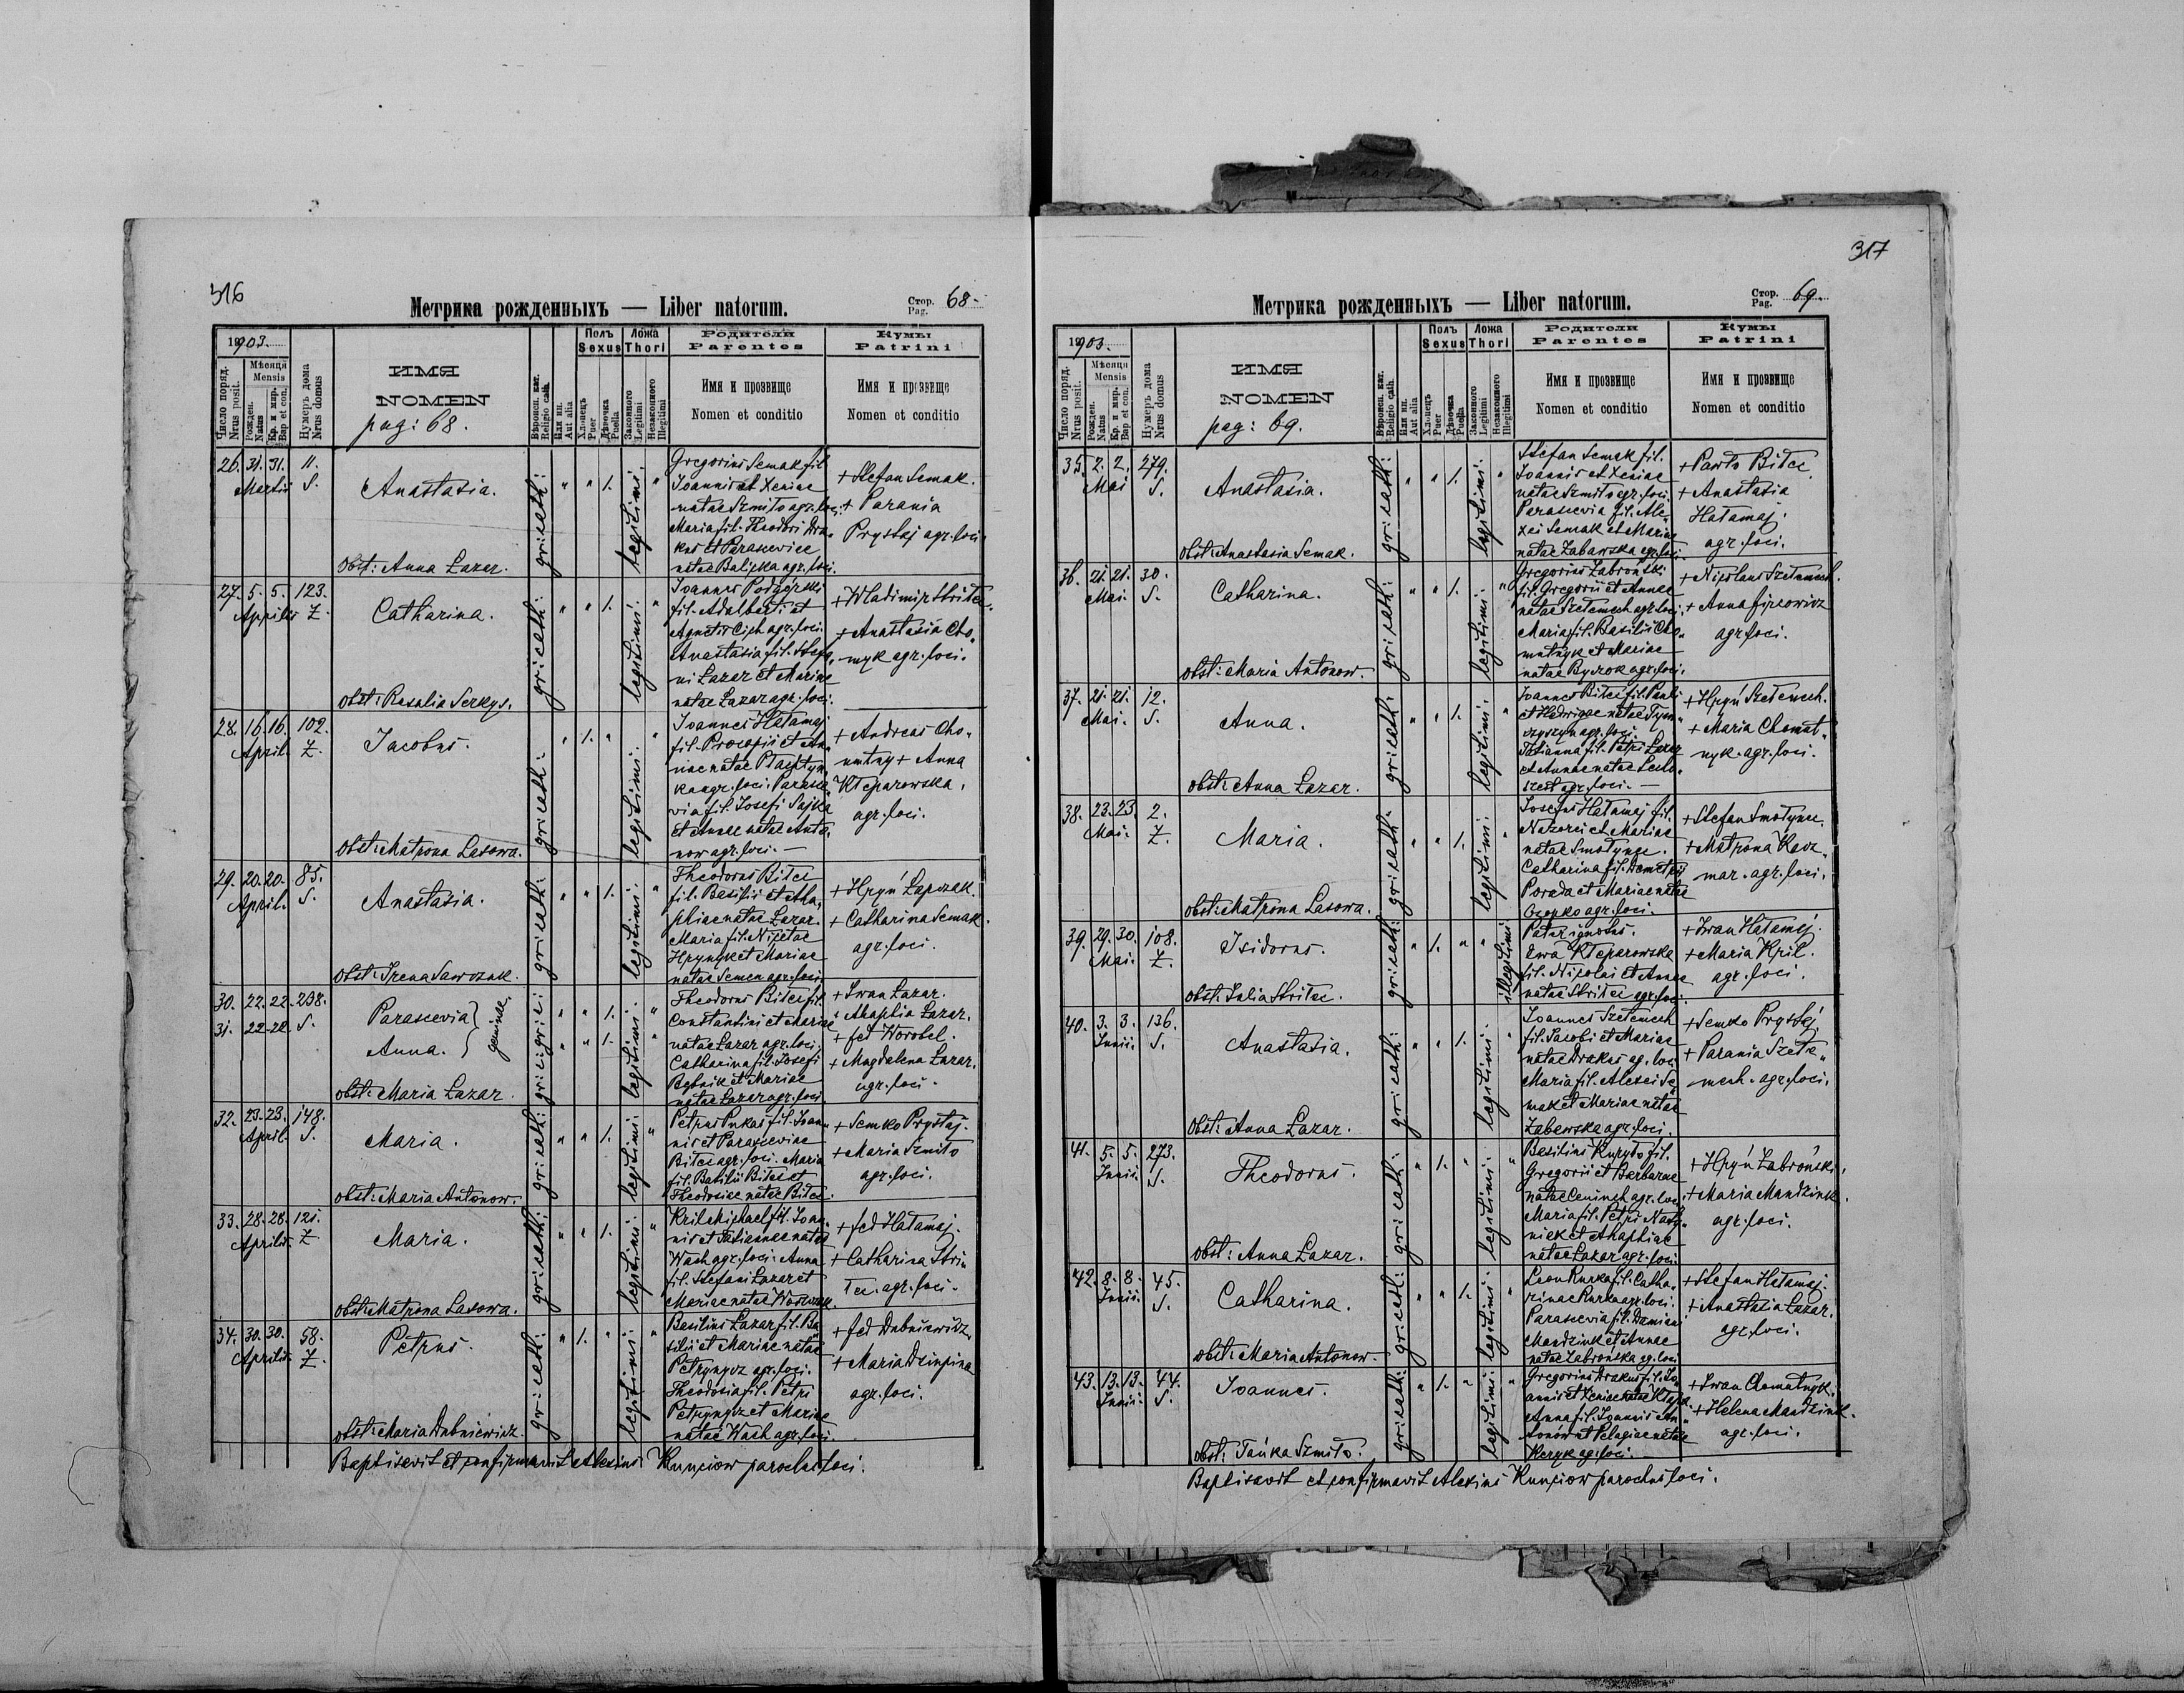 316
Метрика рожденныхъ — Liber natorum.
Стор. Pag. 68.
1903.
Число поряд. Nrus posit.
Мѣсяця Mensis
Рожден. Natus
Кр. и мир. Bap et con.
Нумеръ дома Nrus domus
ИМЯ
NOMEN
pag: 68.
Вѣроисп. кат. Religio cath.
Или ин. Aut alia
Полъ Sexus
Хлопецъ Puer
Дѣвочка Puella
Ложа Thori
Законного Legitimi
Незаконного Illegitimi
Родители
Parentes
Имя и прозвище
Nomen et conditio
Кумы
Patrini
Имя и прозвище
Nomen et conditio
26. 31. 31. Martii 11. S.
Anastasia.
obst: Anna Lazar.
gr: cath: " " 1. legitimi. "
Gregorius Semak fil
Joannis et Xeniae
natae Szmiło agr. loci
Maria fil. Theodori Dra-
kus et Parasceviae
natae Balicka agr. loci.
+ Stefan Semak.
+ Parania
Prystaj agr. loci.
27. 5. 5. Aprilis 123. Z.
Catharina.
obst: Rosalia Serkys.
gr: cath: " " 1. legitimi. "
Joannes Podgórski
fil. Adalberti et
Agnetis Cich agr. loci.
Anastasia fil. Stefa-
ni Lazar et Mariae
natae Lazar agr. loci.
+ Wladimir Stritee.
+ Anastasia Cho-
myk agr. loci.
28. 16. 16. April. 102. Z.
Jacobus.
obst: Matrona Lasowa.
gr: cath: " 1. " legitimi. "
Joannes Hałamaj
fil. Procopii et An-
nae natae
agr. loci. Parasce-
via fil. Josefi Sajka
et Annae natae Anto-
now agr. loci. —
+ Andreas Cho-
mtny + Anna
Kłeparowska,
agr. loci.
29. 20. 20. April. 85. S.
Anastasia.
obst: Irena Sawczak.
gr: cath: " " 1. legitimi. "
Theodorus Bitee
fil. Basilii et Aha-
phiae natae Lazar.
Maria fil. Nicetae
Hrycyk et Mariae
natae Semen agr. loci.
+ Hryń Łapczak.
+ Catharina Semak.
agr. loci.
30. 22. 22. 238.
31. 22. 22. S.
Parascevia } geminae.
Anna. }
obst: Maria Lazar.
gr: c: gr: c: " " 1. legitimi. "
" " 1. "
Theodorus Bitee fil.
Constantini et Mariae
natae Lazar agr. loci.
Catharina fil. Josefi
Bybnik et Mariae
natae Lazar agr. loci.
+ Iwan Lazar.
+ Ahaphia Lazar.
+ Fed Worobel.
+ Magdalena Lazar.
agr. loci.
32. 23. 23. April. 148. S.
Maria.
obst: Maria Antonow.
gr: cath: " " 1. legitimi. "
Petrus Pukas fil. Joan-
nis et Parasceviae
Bitee agr. loci. Maria
fil. Basilii Bitee et
Theodosiae natae Bitee.
+ Semko Prystaj.
+ Maria Szmiło
agr. loci.
33. 28. 28. Aprilis. 121. Z.
Maria.
obst: Matrona Lasowa.
gr: cath: " " 1. legitimi. "
Kril Michael fil. Joan-
nis et Tatiannae natae
Wach agr. loci. Anna
fil. Stefani Lazar et
Mariae natae
+ Fed Hałamaj.
+ Catharina Stri-
tee. agr. loci.
34. 30. 30. Aprilis. 58. Z.
Petrus.
obst: Maria Dubniewicz.
gr: cath: " 1. " legitimi. "
Basilius Lazar fil. Ba-
silii et Mariae natae
Petrynycz agr. loci.
Theodosia fil. Petri
Petrynycz et Mariae
natae Wach agr. loci.
+ Fed Dubniewicz.
+ Maria
agr. loci.
Baptisavit et confirmavit Alexius Kunciow parochus loci.
317
Метрика рожденныхъ — Liber natorum.
Стор. Pag. 69.
1903.
Число поряд. Nrus posit.
Мѣсяця Mensis
Рожден. Natus
Кр. и мир. Bap et con.
Нумеръ дома Nrus domus
ИМЯ
NOMEN
pag: 69.
Вѣроисп. кат. Religio cath.
Или ин. Aut alia
Полъ Sexus
Хлопецъ Puer
Дѣвочка Puella
Ложа Thori
Законного Legitimi
Незаконного Illegitimi
Родители
Parentes
Имя и прозвище
Nomen et conditio
Кумы
Patrini
Имя и прозвище
Nomen et conditio
35. 2. 2. Mai 279. S.
Anastasia.
obst: Anastasia Semak.
gr: cath: " " 1. legitimi. "
Stefan Semak fil.
Joannis et Xeniae
natae Szmiło agr. loci.
Parascevia fil. Ale-
xei Semak et Mariae
natae Zabawska agr. loci.
+ Pawło Bitee.
+ Anastasia
Hałamaj.
agr. loci.
36. 21. 21. Mai. 30. S.
Catharina.
obst: Maria Antonow.
gr: cath: " " 1. legitimi. "
Gregorius Zabroński
fil. Gregorii et Annae
natae Szełemech agr. loci.
Maria fil. Basilii Cho-
matnyk et Mariae
natae Byczok agr. loci.
+ Nicolaus Szełemech.
+ Anna
agr loci.
37. 21. 21. Mai. 12. S.
Anna.
obst: Anna Lazar.
gr: cath: " " 1. legitimi. "
Joannes Bitee fil. Pauli
et Hedvigae natae Tysz-
czyszyn agr. loci.
Tatianna fil. Petri Lazar
et Annae natae
agr. loci. —
+ Hryń Szełemech.
+ Maria Chomat-
nyk. agr. loci.
38. 23. 23. Mai. 2. Z.
Maria.
obst: Matrona Lasowa.
gr: cath: " " 1. legitimi. "
Josefus Hałamaj fil.
Nazarei et Mariae
natae Smotynec.
Catharina fil. Demetrii
Porada et Mariae natae
agr. loci.
+ Stefan Smotynec.
+ Matrona Kacz-
mar. agr. loci.
39. 29. 30. Mai. 108. Z.
Isidorus.
obst: Julia Stritee.
gr: cath: " 1. " " illegitimi
Pater ignotus.
Ewa Kłeparowska
fil. Nicolai et Annae
natae Stritee agr. loci.
+ Iwan Hałamaj.
+ Maria Kril.
agr. loci.
40. 3. 3. Junii. 136. S.
Anastasia.
obst: Anna Lazar.
gr: cath: " " 1. legitimi. "
Joannes Szełemech
fil. Jacobi et Mariae
natae Drakus ag. loci
Maria fil. Alexei Se-
mak et Mariae natae
Zabawska agr. loci.
+ Semko Prystaj.
+ Parania Szełe-
mech. agr. loci.
41. 5. 5. Junii. 273. S.
Theodorus.
obst: Anna Lazar.
gr: cath: " 1. " legitimi. "
Basilius Kuryło fil.
Gregorii et Barbarae
natae agr. loci.
Maria fil. Petri
et Ahaphiae
natae Lazar agr. loci.
+ Hryń Zabroński.
+ Maria Mandziuk.
agr. loci.
42. 8. 8. Junii. 45. S.
Catharina.
obst: Maria Antonow.
gr: cath: " " 1. legitimi. "
Leon Kurka fil. Catha-
rinae Kurka agr. loci.
Parascevia fil. Damiani
Mandziuk et Annae
natae Zabrońska ag. loci
+ Stefan Hałamaj.
+ Anastasia Lazar.
agr. loci.
43. 13. 13. Junii. 44. S.
Joannes.
obst: Tańka Szmiło.
gr: cath: " 1. " legitimi. "
Gregorius Drakus fil. Jo-
annis et Xeniae natae
Anna fil. Joannis An-
tonów et Pelagiae natae
agr. loci. —
+ Iwan Chomatnyk.
+ Helena Mandziuk.
agr. loci.
Baptisavit et confirmavit Alexius Kunciow parochus loci.